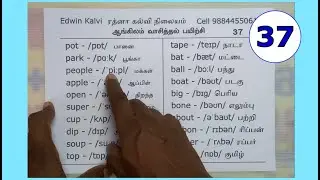 Edwin Kalvi ரத்னா கல்வி நிலையம் Cell 984455506
ஆங்கிலம் வாசித்தல் பயிற்சி 37
37
pot - /pɒt/ பானை
park - /pɑ:k/ பூங்கா
people - /ˈpi:pl/ மக்கள்
apple - ஆப்பிள்
open - திறந்த
super -
cup - /kʌp/
dip - /dɪp/
soup - /su:p/
top - /tɒp/
tape - /teɪp/ நாடா
bat - /bæt/ மட்டை
ball - /bɔ:l/ பந்து
boat - /bəʊt/ படகு
big - /bɪg/ பெரிய
bone - /bəʊn/ எலும்பு
about - /əˈbaʊt/ பற்றி
சிப்பன்
ரப்பர்
குமிழ்